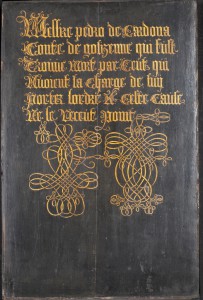 Messire pedro de Cardona
Conte de golizenne qui fust
Trouve mort par Ceulx qui
Avoient la Charge de luy
Porter lordre A Ceste Cause
Ne le Receut point